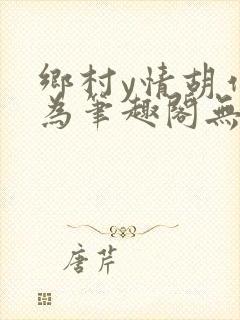 鄉村y情胡
為筆趣閣無
唐芹